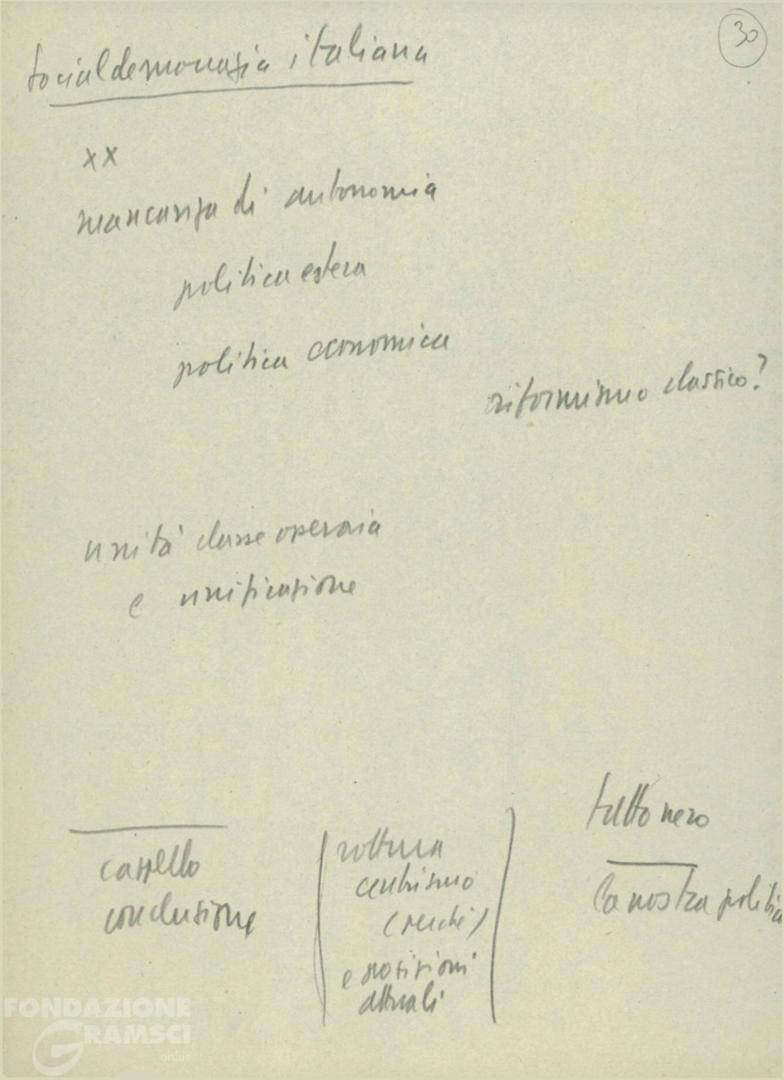 30
socialdemocrazia italiana
xx
mancanza di autonomia
politica estera
politica economica
riformismo classico?
unità classe operaia
e unificazione
tutto nero
cappello
conclusione
rottura
centrismo
(perché)
e posizioni
attuali
la nostra politica
FONDAZIONE
GRAMSCI
onlus